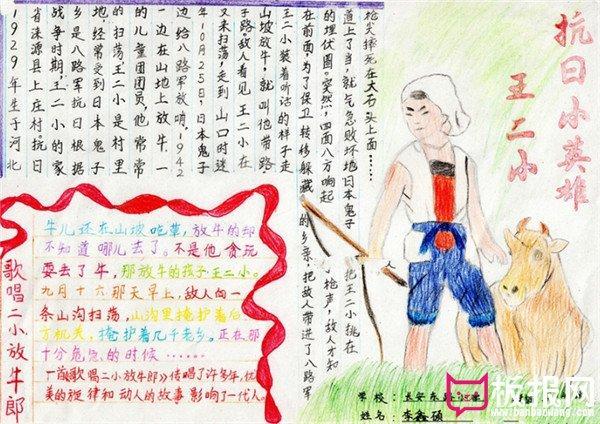 抗日小英雄
王二小
1929年生于河北
省涞源县上庄村。抗日
战争时期,王二小的家
乡是八路军抗日根据
地,经常受到日本鬼子
的扫荡,王二小是村里
的儿童团团员,他常常
一边在山地上放牛,一
边给八路军放哨。1942
年10月25日,日本鬼子
又来扫荡,走到山口时迷
了路敌人看见王二小在
山坡放牛,就叫他带路。
王二小装着听话的样子走
在前面为了保卫转移躲藏的乡亲,把敌人带进了八路军
的埋伏圈。突然,四面八方响起枪声,敌人才知
道上了当,就气急败坏地日本鬼子把王二小挑在
枪尖摔死在大石头上面……
歌唱二小放牛郎
牛儿还在山坡吃草,放牛的却
不知道哪儿去了。不是他贪玩
耍丢了牛,那放牛的孩子王二小。
九月十六那天早上,敌人向一
条山沟扫荡,山沟里掩护着后
方机关,掩护着几千老乡。正在那
十分危急的时候……
一首《歌唱二小放牛郎》传唱了许多年,优
美的旋律和动人的故事影响了一代人。
学校:长安东路
姓名:李鑫硕
板报网
www.banbaowang.com